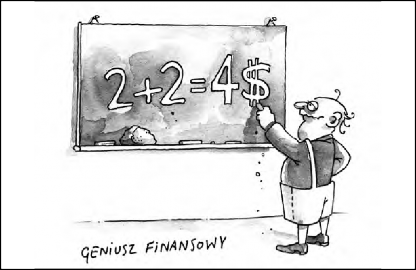 2+2=4$
GENIUSZ FINANSOWY